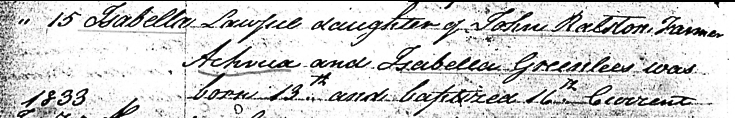 " 15 Isabella Lawful daughter of John Ralston, Farmer
Achrua and Isabella Greenlees was
1833 born 13th and baptized 16th Current